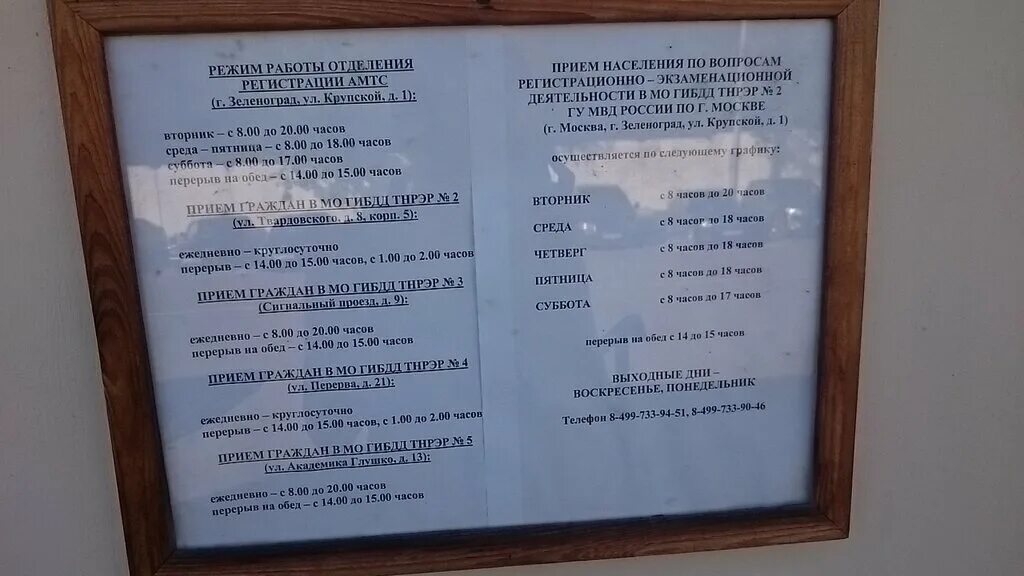 РЕЖИМ РАБОТЫ ОТДЕЛЕНИЯ
РЕГИСТРАЦИИ АМТС
(г. Зеленоград, ул. Крупской, д. 1):
вторник – с 8.00 до 20.00 часов
среда – пятница – с 8.00 до 18.00 часов
суббота – с 8.00 до 17.00 часов
перерыв на обед – с 14.00 до 15.00 часов
ПРИЕМ ГРАЖДАН В МО ГИБДД ТНРЭР № 2
(ул. Твардовского, д. 8, корп. 5):
ежедневно – круглосуточно
перерыв – с 14.00 до 15.00 часов, с 1.00 до 2.00 часов
ПРИЕМ ГРАЖДАН В МО ГИБДД ТНРЭР № 3
(Сигнальный проезд, д. 9):
ежедневно – с 8.00 до 20.00 часов
перерыв на обед – с 14.00 до 15.00 часов
ПРИЕМ ГРАЖДАН В МО ГИБДД ТНРЭР № 4
(ул. Перерва, д. 21):
ежедневно – круглосуточно
перерыв – с 14.00 до 15.00 часов, с 1.00 до 2.00 часов
ПРИЕМ ГРАЖДАН В МО ГИБДД ТНРЭР № 5
(ул. Академика Глушко, д. 13):
ежедневно – с 8.00 до 20.00 часов
перерыв на обед – с 14.00 до 15.00 часов
ПРИЕМ НАСЕЛЕНИЯ ПО ВОПРОСАМ
РЕГИСТРАЦИОННО – ЭКЗАМЕНАЦИОННОЙ
ДЕЯТЕЛЬНОСТИ В МО ГИБДД ТНРЭР № 2
ГУ МВД РОССИИ ПО Г. МОСКВЕ
(г. Москва, г. Зеленоград, ул. Крупской, д. 1)
осуществляется по следующему графику:
ВТОРНИК с 8 часов до 20 часов
СРЕДА с 8 часов до 18 часов
ЧЕТВЕРГ с 8 часов до 18 часов
ПЯТНИЦА с 8 часов до 18 часов
СУББОТА с 8 часов до 17 часов
перерыв на обед с 14 до 15 часов
ВЫХОДНЫЕ ДНИ –
ВОСКРЕСЕНЬЕ, ПОНЕДЕЛЬНИК
Телефон 8-499-733-94-51, 8-499-733-90-46